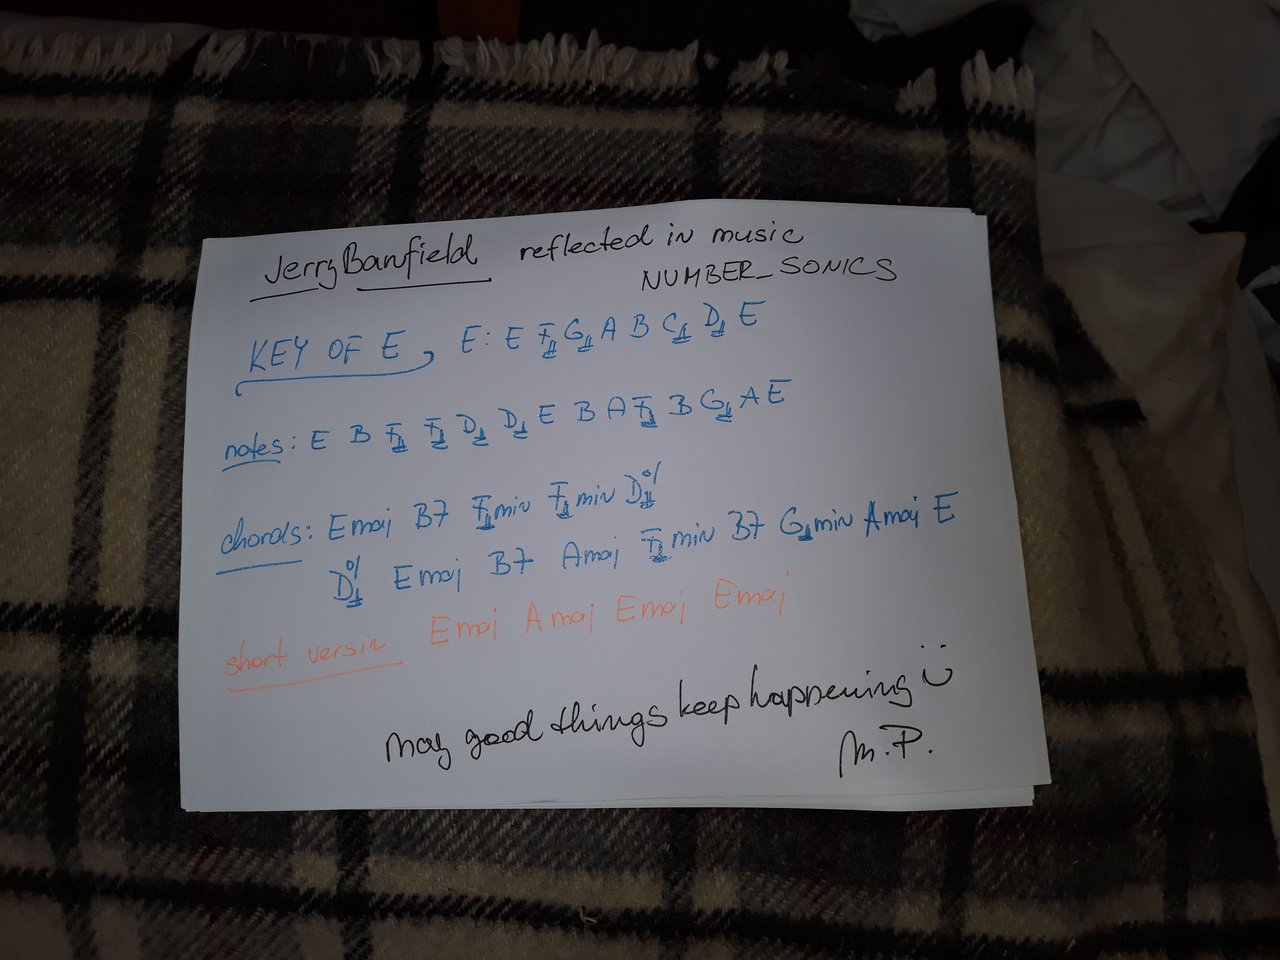 Jerry Banfield reflected in music
NUMBER_SONICS
KEY OF E, E: E F# G# A B C# D# E
notes: E B F# F# D# D# E B A F# B G# A E
chords: Emaj B7 F#min F#min D#%
D#% Emaj B7 Amaj F#min B7 G#min Amaj E
short versin Emaj Amaj Emaj Emaj
May good things keep happening ü
M.P.